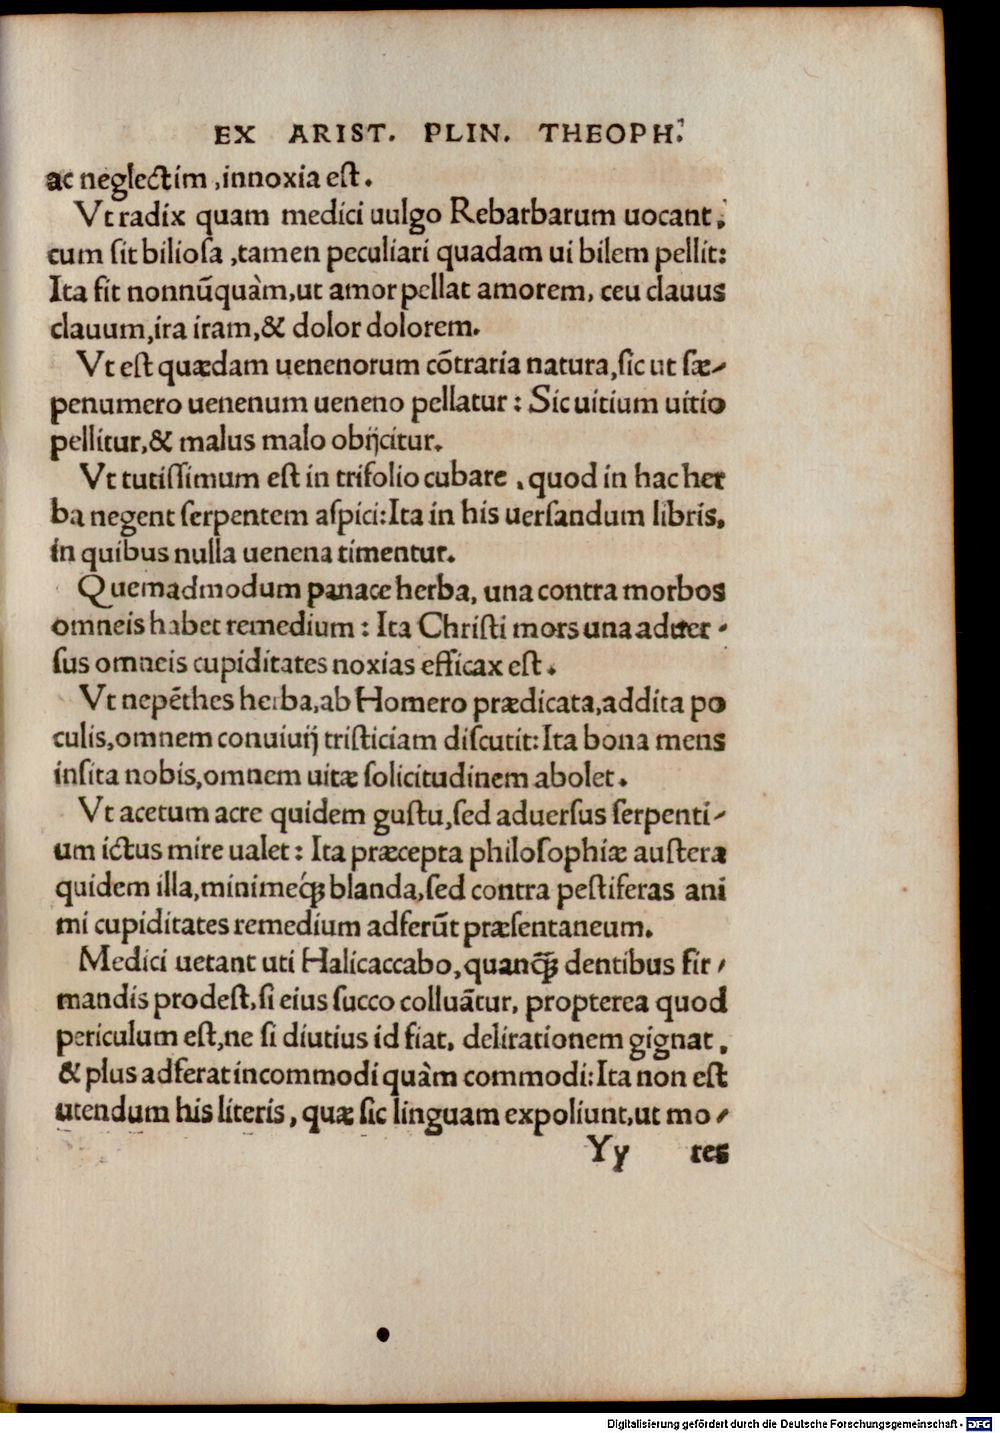 EX ARIST. PLIN. THEOPH.
ac neglectim, innoxia est.
Vt radix quam medici uulgo Rebarbarum uocant,
cum sit biliosa, tamen peculiari quadam ui bilem pellit:
Ita fit nonnūquàm, ut amor pellat amorem, ceu clauus
clauum, ira iram, & dolor dolorem.
Vt est quædam uenenorum cōtraria natura, sic ut sæ-
penumero uenenum ueneno pellatur: Sic uitium uitio
pellitur, & malus malo obijcitur.
Vt tutissimum est in trifolio cubare, quod in hac her
ba negent serpentem aspici: Ita in his uersandum libris,
in quibus nulla uenena timentur.
Quemadmodum panace herba, una contra morbos
omneis habet remedium: Ita Christi mors una aduer-
sus omneis cupiditates noxias efficax est.
Vt nepēthes herba, ab Homero prædicata, addita po
culis, omnem conuiuij tristiciam discutit: Ita bona mens
insita nobis, omnem uitæ solicitudinem abolet.
Vt acetum acre quidem gustu, sed aduersus serpenti-
um ictus mire ualet: Ita præcepta philosophiæ austera
quidem illa, minimeq́; blanda, sed contra pestiferas ani
mi cupiditates remedium adferūt præsentaneum.
Medici uetant uti Halicaccabo, quanq̄; dentibus fir-
mandis prodest, si eius succo colluātur, propterea quod
periculum est, ne si diutius id fiat, delirationem gignat,
& plus adferat incommodi quàm commodi: Ita non est
utendum his literis, quæ sic linguam expoliunt, ut mo-
Yy res
Digitalisierung gefördert durch die Deutsche Forschungsgemeinschaft - DFG